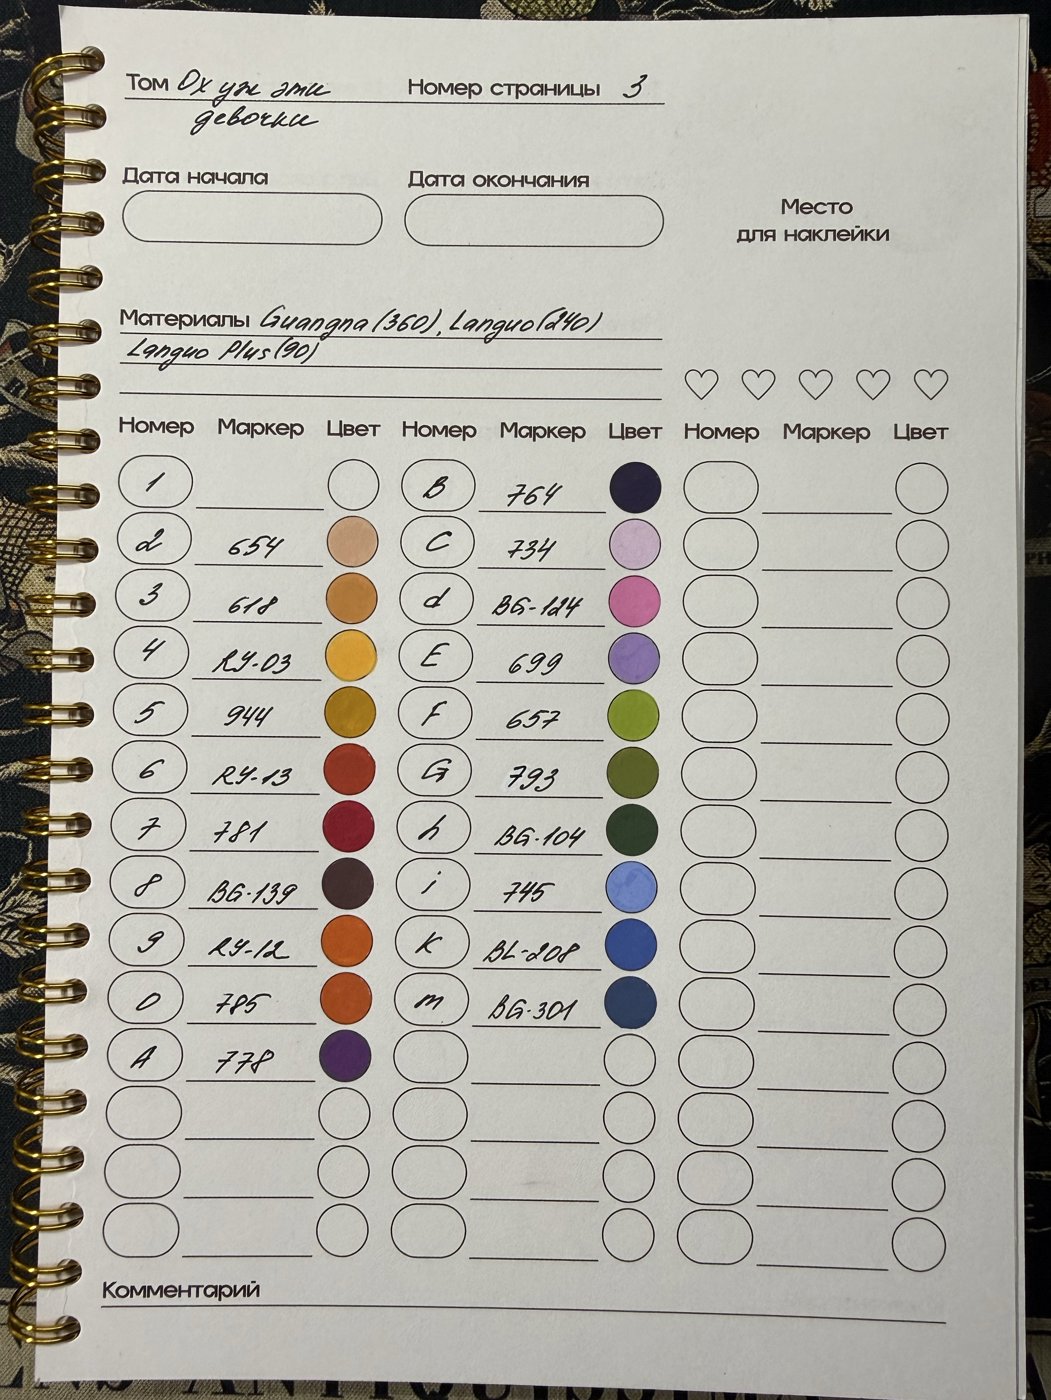 Том Ох уж эти Номер страницы 3
девочки
Дата начала Дата окончания
Место
для наклейки
Материалы Guangna (360), Languo (240)
Languo Plus (90)
Номер Маркер Цвет Номер Маркер Цвет Номер Маркер Цвет
1 B 764
2 654 C 734
3 618 d BG-124
4 RY-03 E 699
5 944 F 657
6 RY-13 G 793
7 781 h BG-104
8 BG-139 i 745
9 RY-12 K BL-208
0 785 m BG-301
A 778
Комментарий